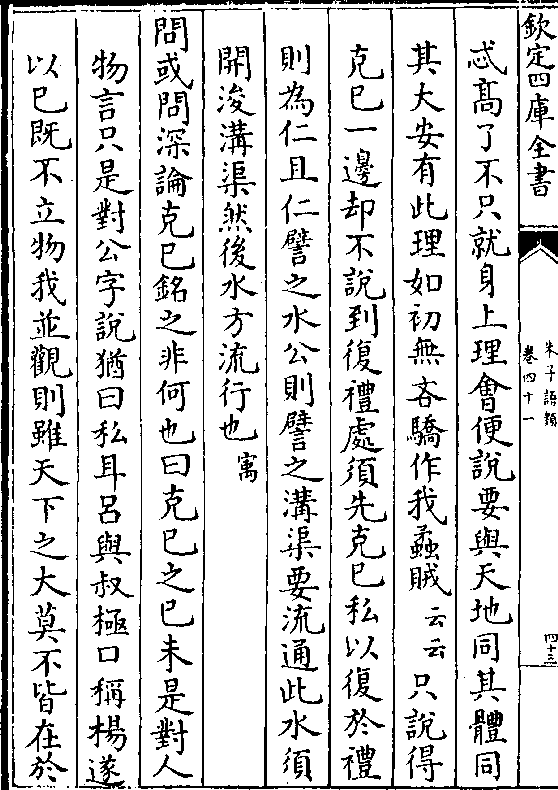 欽定四庫全書
朱子語類
卷四十一
四十三
忒髙了不只就身上理㑹便說要與天地同其體同
其大安有此理如初無吝驕作我蟊賊云云只說得
克已一邊却不說到復禮處須先克已私以復於禮
則為仁且仁譬之水公則譬之溝渠要流通此水須
開浚溝渠然後水方流行也寓
問或問深論克已銘之非何也曰克已之已未是對人
物言只是對公字說猶曰私耳吕與叔極口稱楊遂
以已既不立物我並觀則雖天下之大莫不皆在於